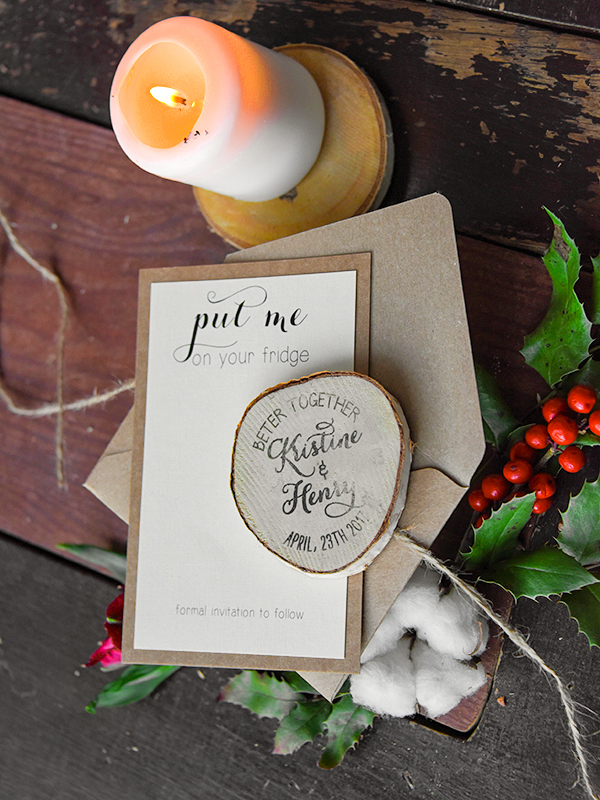 put me
on your fridge
BETER TOGETHER
Kristine
&
Henry
APRIL, 23TH 2017
formal invitation to follow